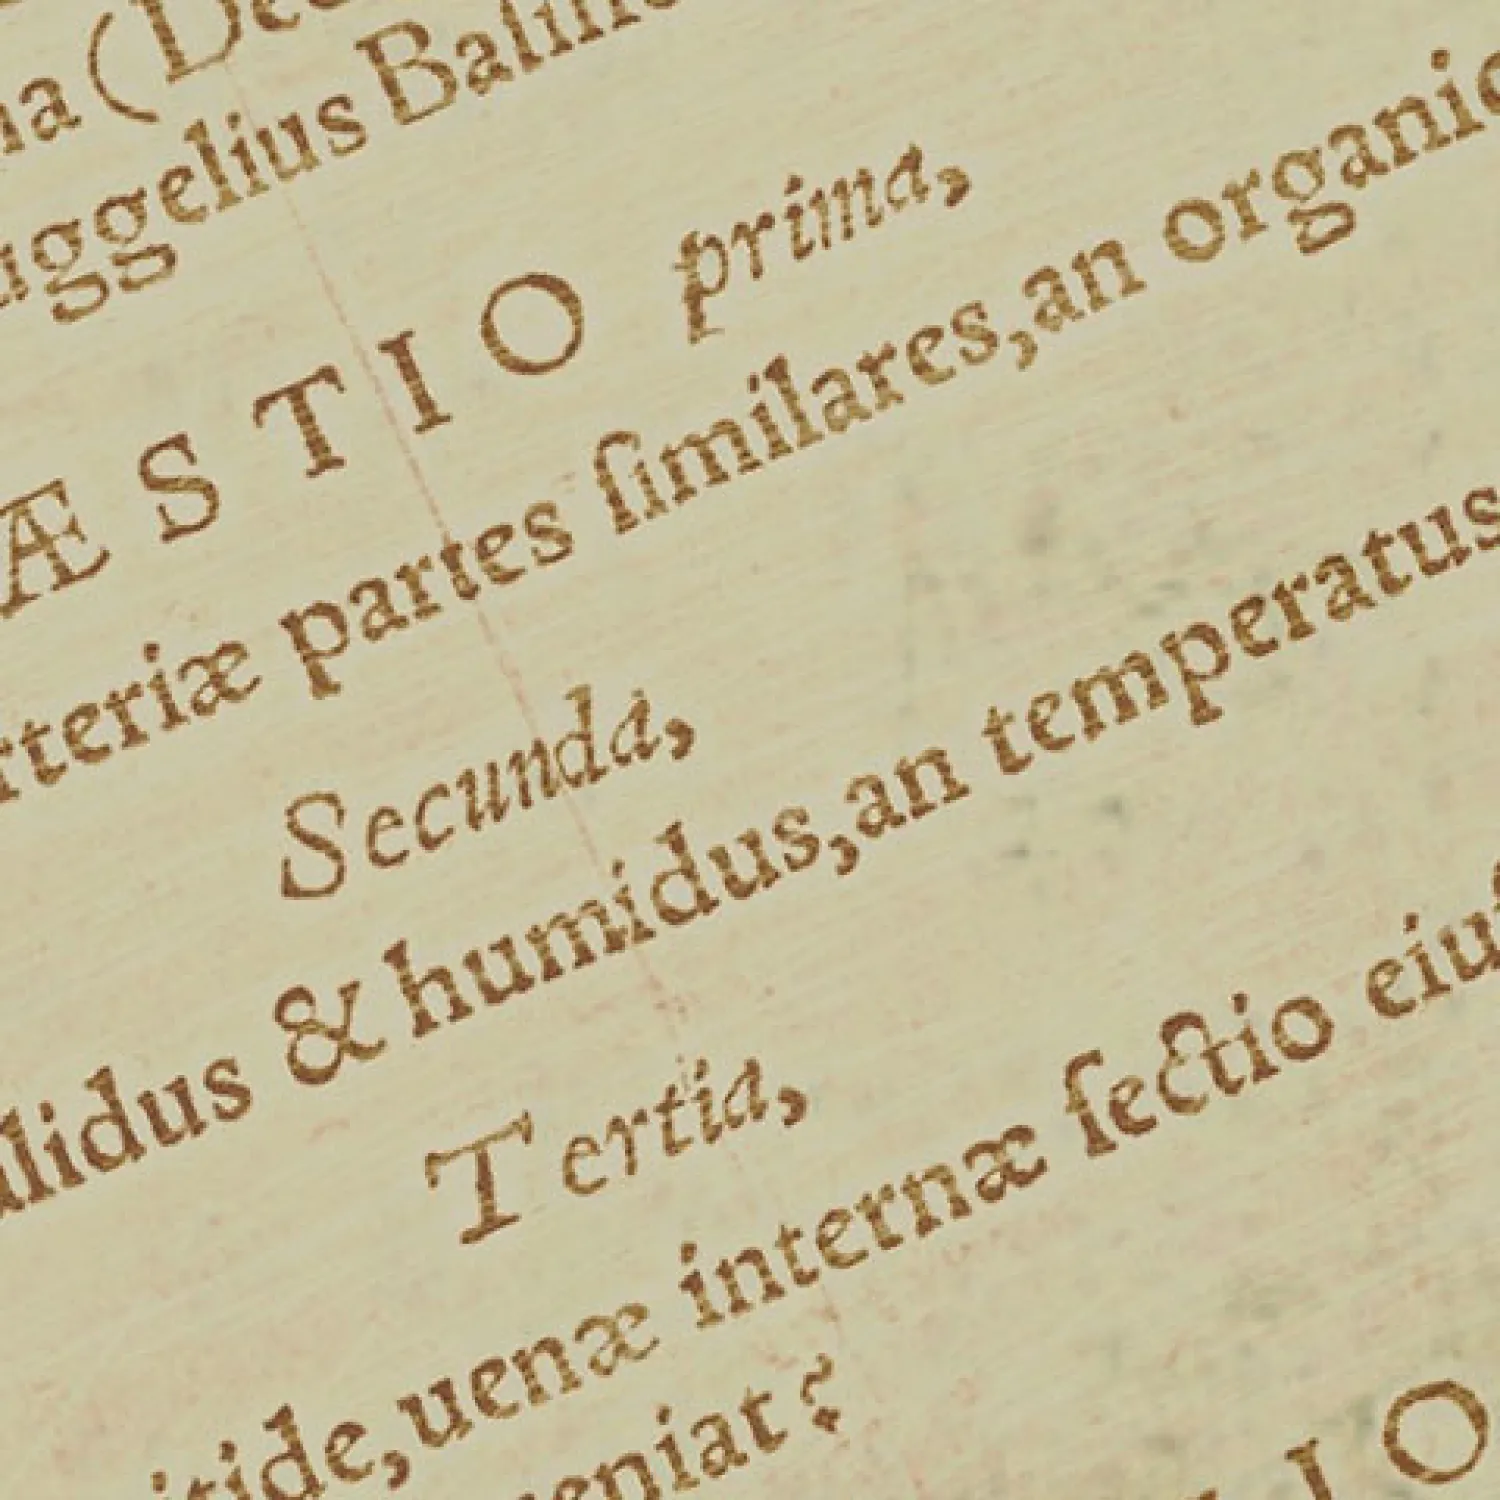 na (Dec
uggelius Balin
ÆSTIO prima,
rteriæ partes ſimilares,an organic
Secunda,
alidus & humidus,an temperatus
Tertia,
itide,uenæ internæ ſectio eiuſ
ueniat?
IO